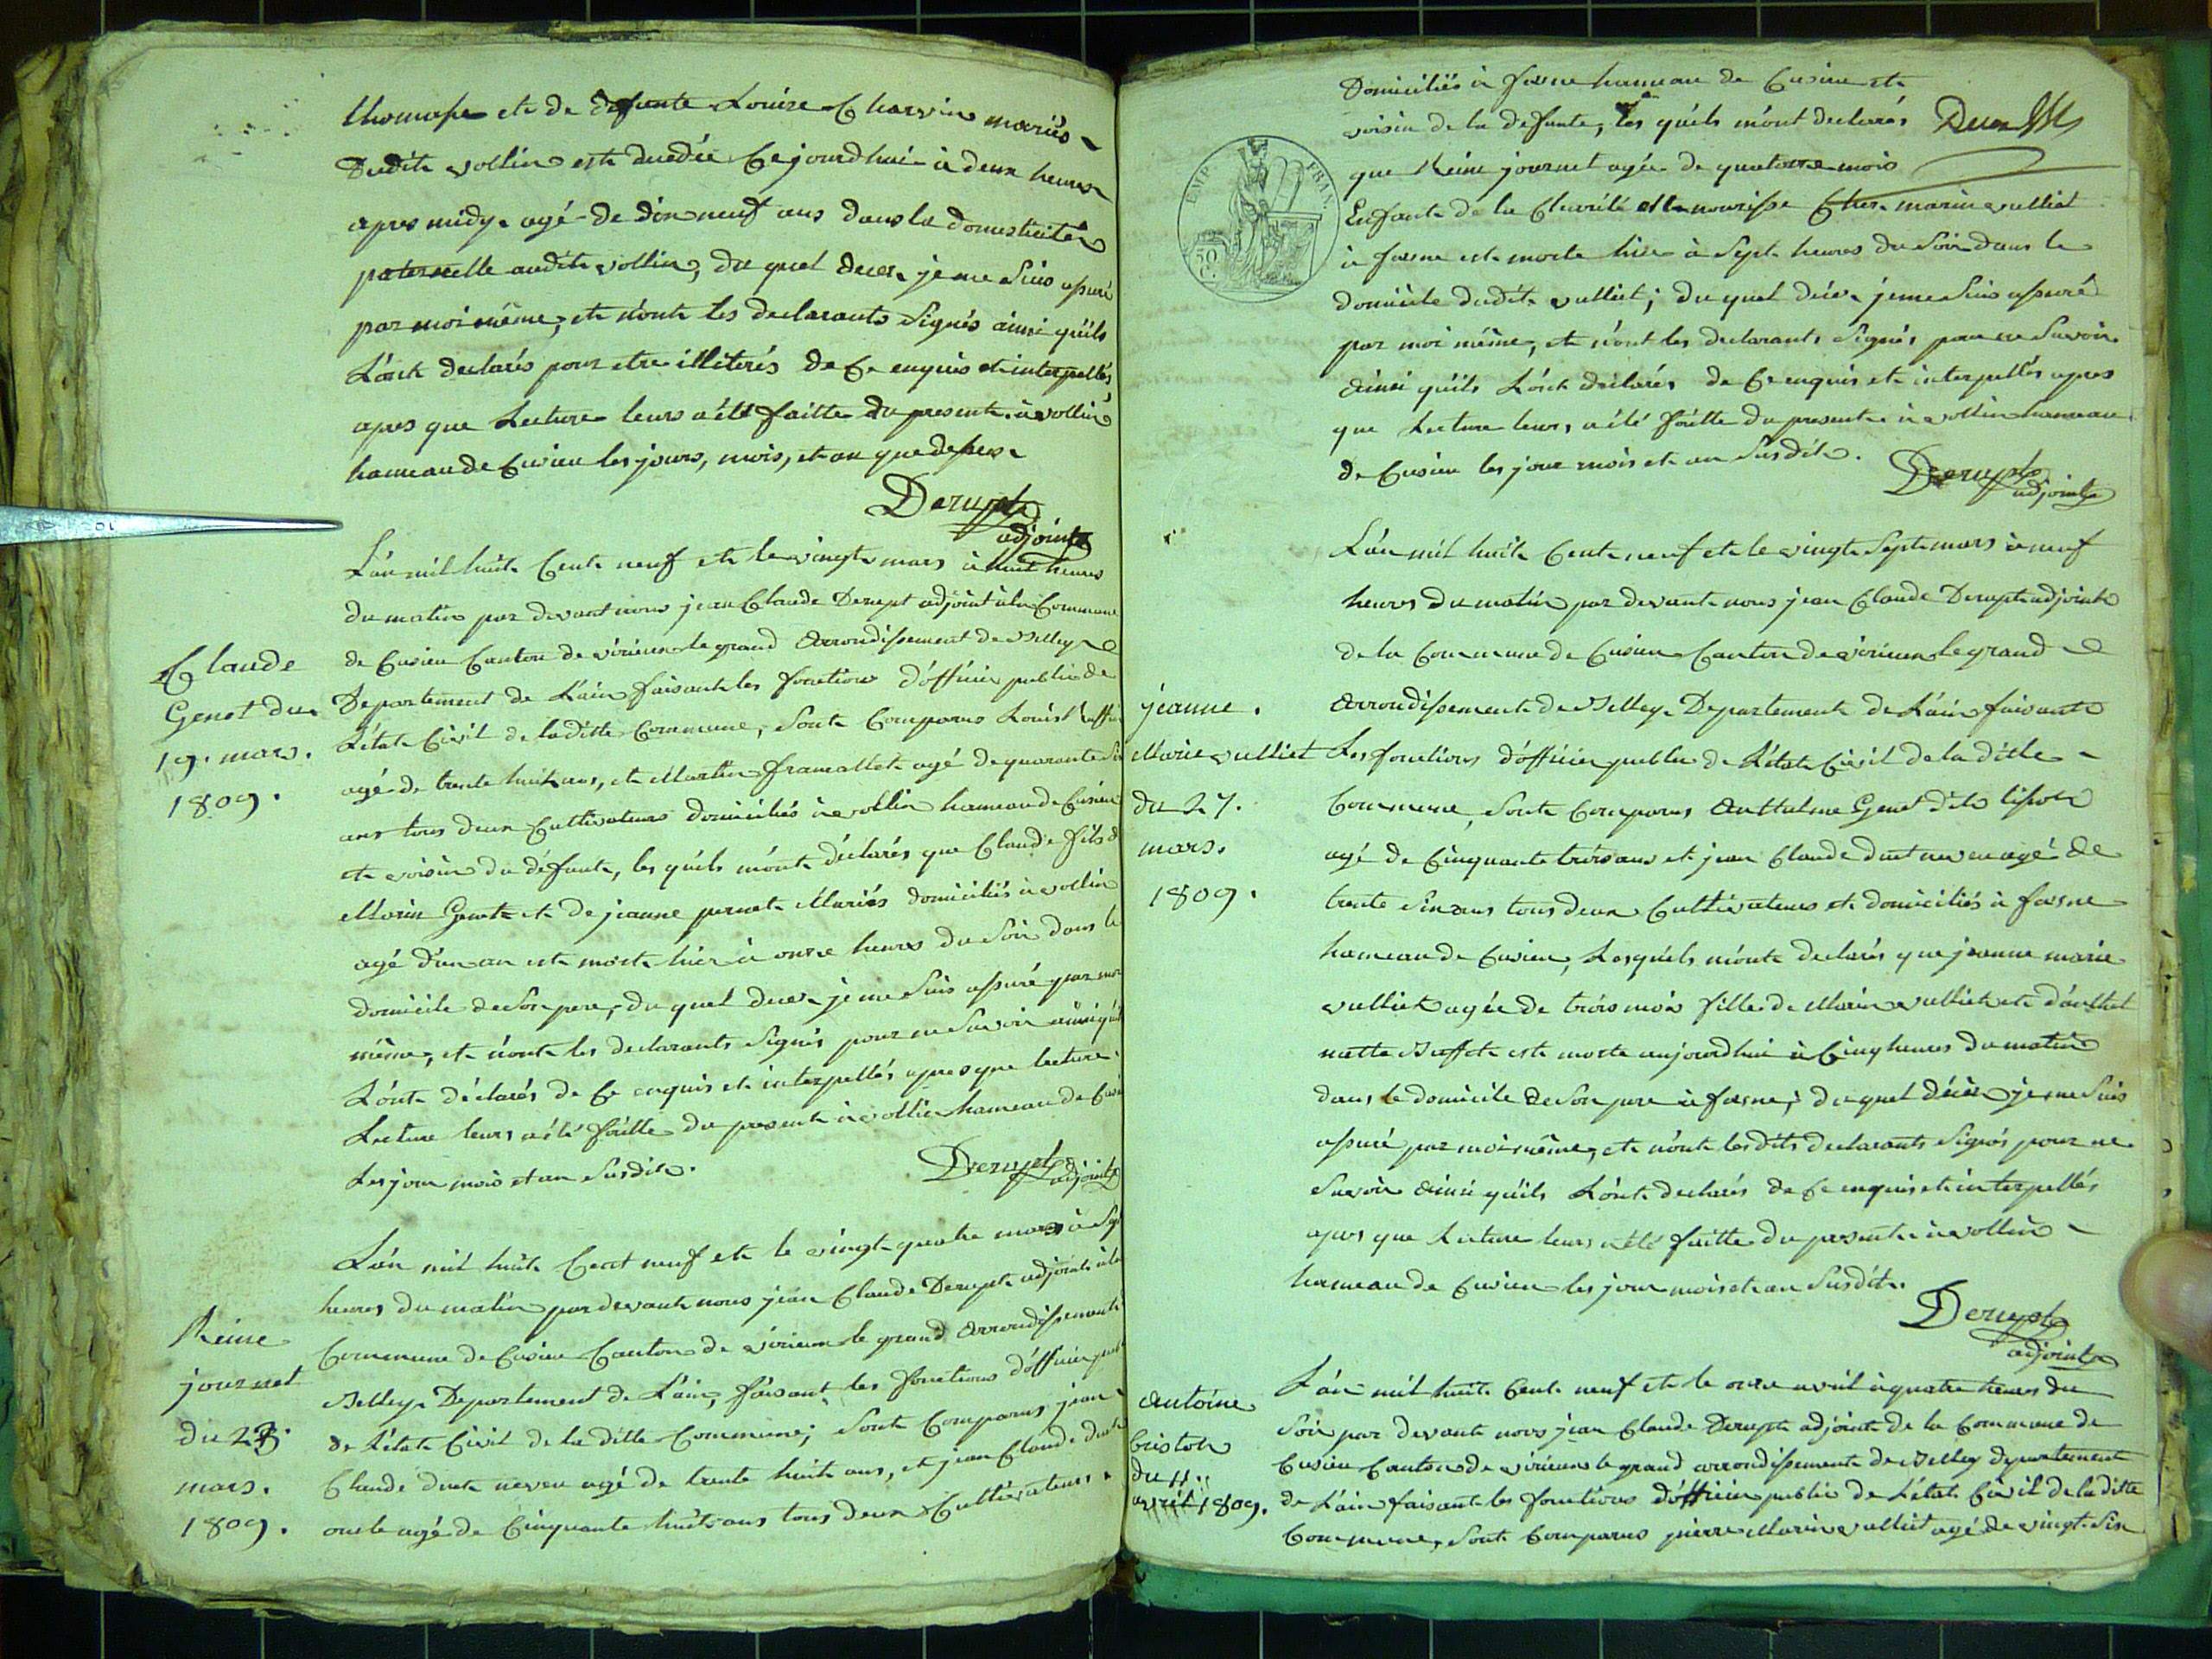 thomasse et de defunte Louise Charvin mariés
Dudit vollin est decedée Cejourdhui à deux heures
apres midy agé de dix neuf ans dans la domesticité
paternelle audit vollin, du quel deces je me suis assuré
par moi même, et n'ont les declarants signés ainsi qu'ils
L'ont declarés pour etre illiterés de Ce enquis et interpellés
apres que Lecture leurs a été faitte du present à vollin
hameau de Cusieu les jours, mois, et an que dessus
Derupt
adjoint
L'an mil huit Cent neuf et le vingt mars à huit heures
du matin par devant nous jean Claude Derupt adjoint à la Commune
de Cusieu Canton de virieu le grand Arrondissement de Belley
Departement de L'ain faisant les fonctions d'officier public de
L'état Civil de laditte Commune, sont Comparus Louis
agé de trente huit ans, et Martin agé de quarante
ans tous deux Cultivateurs domiciliés à vollin hameau de Cusieu
et voisin du défunt, les quels m'ont déclarés que Claude fils d
Marin Genet et de jeanne pernet Mariés domiciliés à vollin
agé d'un an est mort hier à onze heures du soir dans le
domicile de son pere, du quel deces je me suis assuré par moi
même, et n'ont les declarants signés pour ne savoir ainsi qu'il
L'ont déclarés de Ce enquis et interpellés apres que lecture
Lecture leurs a été faitte du present à vollin hameau de Cusi
Les jour mois et an susdit.
Derupt adjoint
Claude
Genet du
19. mars.
1809.
L'an mil huit Cent neuf et le vingt quatre mars à sept
heures du matin par devant nous jean Claude Derupt adjoint à la
Commune de Cusieu Canton de virieu le grand Arrondissement
Belley Departement de L'ain, faisant les fonctions d'officier publ
de L'état Civil de la ditte Commune; sont Comparus jean
Claude neveu agé de trente huit ans, et jean Claude
oncle agé de Cinquante huit ans tous deux Cultivateurs
Reine
journet
du 23.
mars.
1809.
Domiciliés à fosne hameau de Cusieu et
voisin de la defunte, les quels m'ont declarés
que Reine journet agée de quatorze mois
Enfant de la Charité en nourisse Chez marin vulliet
à fosne est morte hier à sept heures du soir dans le
domicile dudit vulliet; du quel déces je me suis assuré
par moi même, et n'ont les declarants signés pour ne savoir
ainsi qu'ils L'ont déclarés de Ce enquis et interpellés apres
que Lecture leurs a été faitte du present à vollin hameau
de Cusieu les jour mois et an susdit.
Derupt
adjoint
EMP. FRAN.
50
C.
L'an mil huit Cent neuf et le vingt sept mars à neuf
heures du matin par devant nous jean Claude Derupt adjoint
de la Commune de Cusieu Canton de virieu le grand
Arrondissement de Belley Departement de L'ain faisant
Les fonctions d'officier public de L'état Civil de la ditte
Commune, sont Comparus Anthelme Genet dit
agé de Cinquante trois ans et jean Claude neveu agé de
trente six ans tous deux Cultivateurs et domiciliés à fosne
hameau de Cusieu, Lesquels m'ont declarés que jeanne marie
vulliet agée de trois mois fille de Marin vulliet et d'anthel
mette Buffet est morte aujourdhui à Cinq heures du matin
dans le domicile de son pere à fosne; du quel décès je me suis
assuré par moi même, et n'ont lesdits declarants signés pour ne
savoir ainsi qu'ils L'ont declarés de Ce enquis et interpellés
apres que Lecture leurs a été faitte du present à vollin
hameau de Cusieu les jour mois et an susdit.
Derupt
adjoint
jeanne.
Marie vulliet
du 27.
mars.
1809.
L'an mil huit Cent neuf et le onze avril à quatre heures du
soir par devant nous jean Claude Derupt adjoint de la Commune de
Cusieu Canton de virieu le grand arrondissement de Belley departement
de L'ain faisant les fonctions d'officier public de L'état Civil de la ditte
Commune, sont Comparus pierre Marin vulliet agé de vingt six
Antoine
Criston
du 11.
avril 1809.